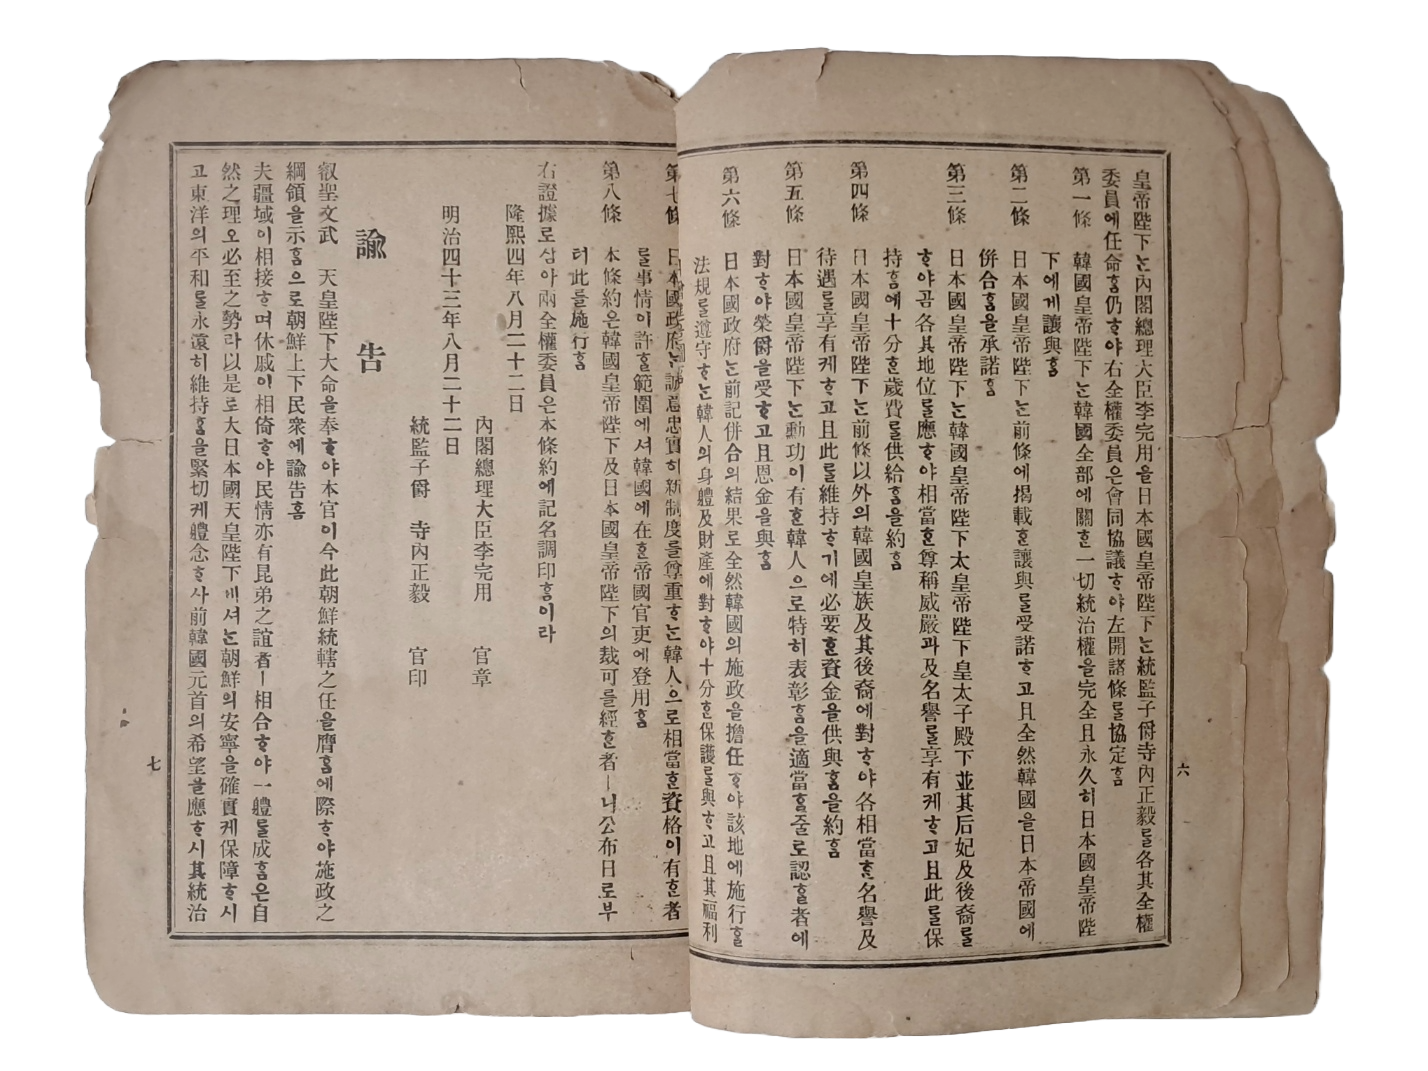 六
皇帝陛下ᄂᆞᆫ內閣總理大臣李完用을日本國皇帝陛下ᄂᆞᆫ統監子爵寺內正毅ᄅᆞᆯ各其全權
委員에任命ᄒᆞᆷ仍ᄒᆞ야右全權委員은會同協議ᄒᆞ야左開諸條ᄅᆞᆯ協定ᄒᆞᆷ
第一條　韓國皇帝陛下ᄂᆞᆫ韓國全部에關ᄒᆞᆫ一切統治權을完全且永久히日本國皇帝陛
下에게讓與ᄒᆞᆷ
第二條　日本國皇帝陛下ᄂᆞᆫ前條에揭載ᄒᆞᆫ讓與ᄅᆞᆯ受諾ᄒᆞ고且全然韓國을日本帝國에
併合ᄒᆞᆷ을承諾ᄒᆞᆷ
第三條　日本國皇帝陛下ᄂᆞᆫ韓國皇帝陛下太皇帝陛下皇太子殿下並其后妃及後裔ᄅᆞᆯ
ᄒᆞ야곰各其地位ᄅᆞᆯ應ᄒᆞ야相當ᄒᆞᆫ尊稱威嚴과及名譽ᄅᆞᆯ享有케ᄒᆞ고且此ᄅᆞᆯ保
持ᄒᆞᆷ에十分ᄒᆞᆫ歲費ᄅᆞᆯ供給ᄒᆞᆷ을約ᄒᆞᆷ
第四條　日本國皇帝陛下ᄂᆞᆫ前條以外의韓國皇族及其後裔에對ᄒᆞ야各相當ᄒᆞᆫ名譽及
待遇ᄅᆞᆯ享有케ᄒᆞ고且此ᄅᆞᆯ維持ᄒᆞ기에必要ᄒᆞᆫ資金을供與ᄒᆞᆷ을約ᄒᆞᆷ
第五條　日本國皇帝陛下ᄂᆞᆫ勳功이有ᄒᆞᆫ韓人으로特히表彰ᄒᆞᆷ을適當ᄒᆞᆯ줄로認ᄒᆞᆯ者에
對ᄒᆞ야榮爵을受ᄒᆞ고且恩金을與ᄒᆞᆷ
第六條　日本國政府ᄂᆞᆫ前記併合의結果로全然韓國의施政을擔任ᄒᆞ야該地에施行ᄒᆞᆯ
法規ᄅᆞᆯ遵守ᄒᆞᄂᆞᆫ韓人의身體及財產에對ᄒᆞ야十分ᄒᆞᆫ保護ᄅᆞᆯ與ᄒᆞ고且其福利
第七條　日本國政府ᄂᆞᆫ誠意忠實히新制度를尊重ᄒᆞᄂᆞᆫ韓人으로相當ᄒᆞᆫ資格이有ᄒᆞᆫ者
를事情이許ᄒᆞᆯ範圍에셔韓國에在ᄒᆞᆫ帝國官吏에登用ᄒᆞᆷ
第八條　本條約은韓國皇帝陛下及日本國皇帝陛下의裁可를經ᄒᆞᆫ者ㅣ니公布日로부
터此를施行ᄒᆞᆷ
右證據로삼아兩全權委員은本條約에記名調印ᄒᆞᆷ이라
隆熙四年八月二十二日
內閣總理大臣李完用　官章
明治四十三年八月二十二日
統監子爵　寺內正毅　官印
諭　告
叡聖文武　天皇陛下大命을奉ᄒᆞ야本官이今此朝鮮統轄之任을膺ᄒᆞᆷ에際ᄒᆞ야施政之
綱領을示ᄒᆞᆷ으로朝鮮上下民衆에諭告ᄒᆞᆷ
夫疆域이相接ᄒᆞ며休戚이相倚ᄒᆞ야民情亦有昆弟之誼者ㅣ相合ᄒᆞ야一體를成ᄒᆞᆷ은自
然之理오必至之勢라以是로大日本國天皇陛下게셔ᄂᆞᆫ朝鮮의安寧을確實케保障ᄒᆞ시
고東洋의平和를永遠히維持ᄒᆞᆷ을緊切케體念ᄒᆞ사前韓國元首의希望을應ᄒᆞ시其統治
七